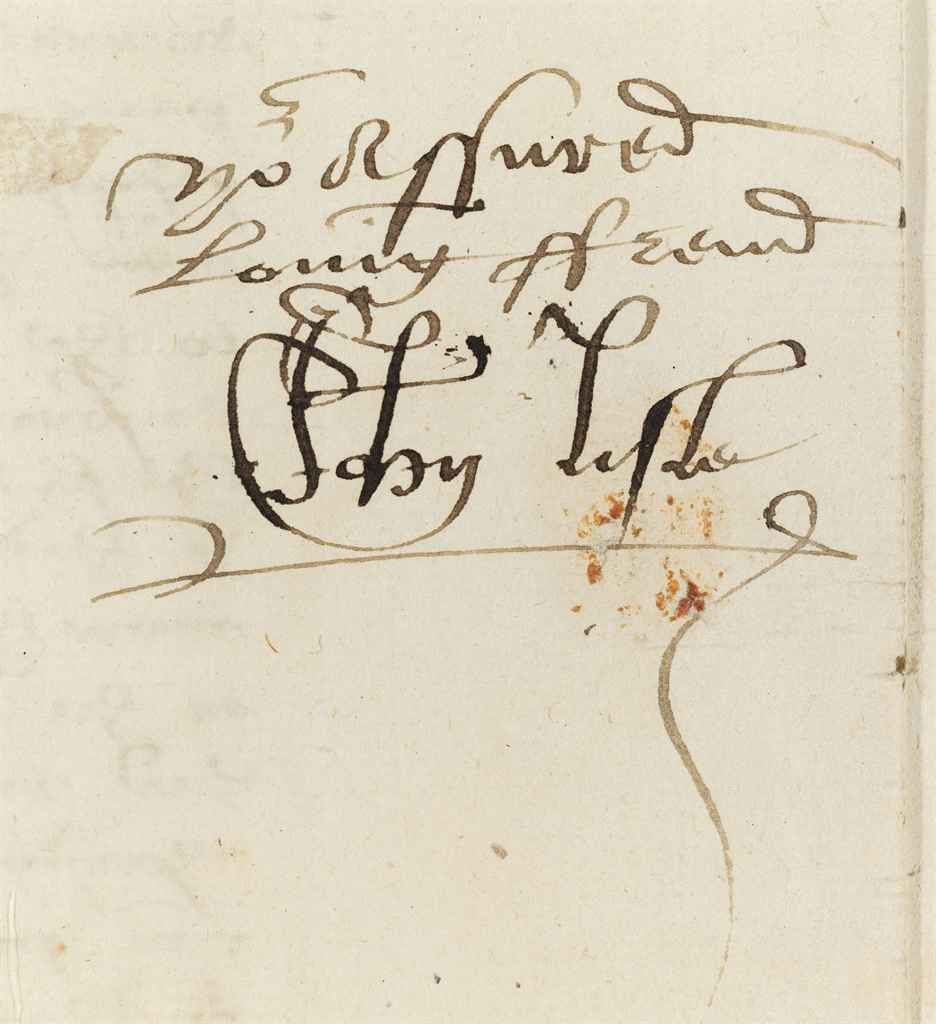 yor assured
Loving ffrend
John Lisle